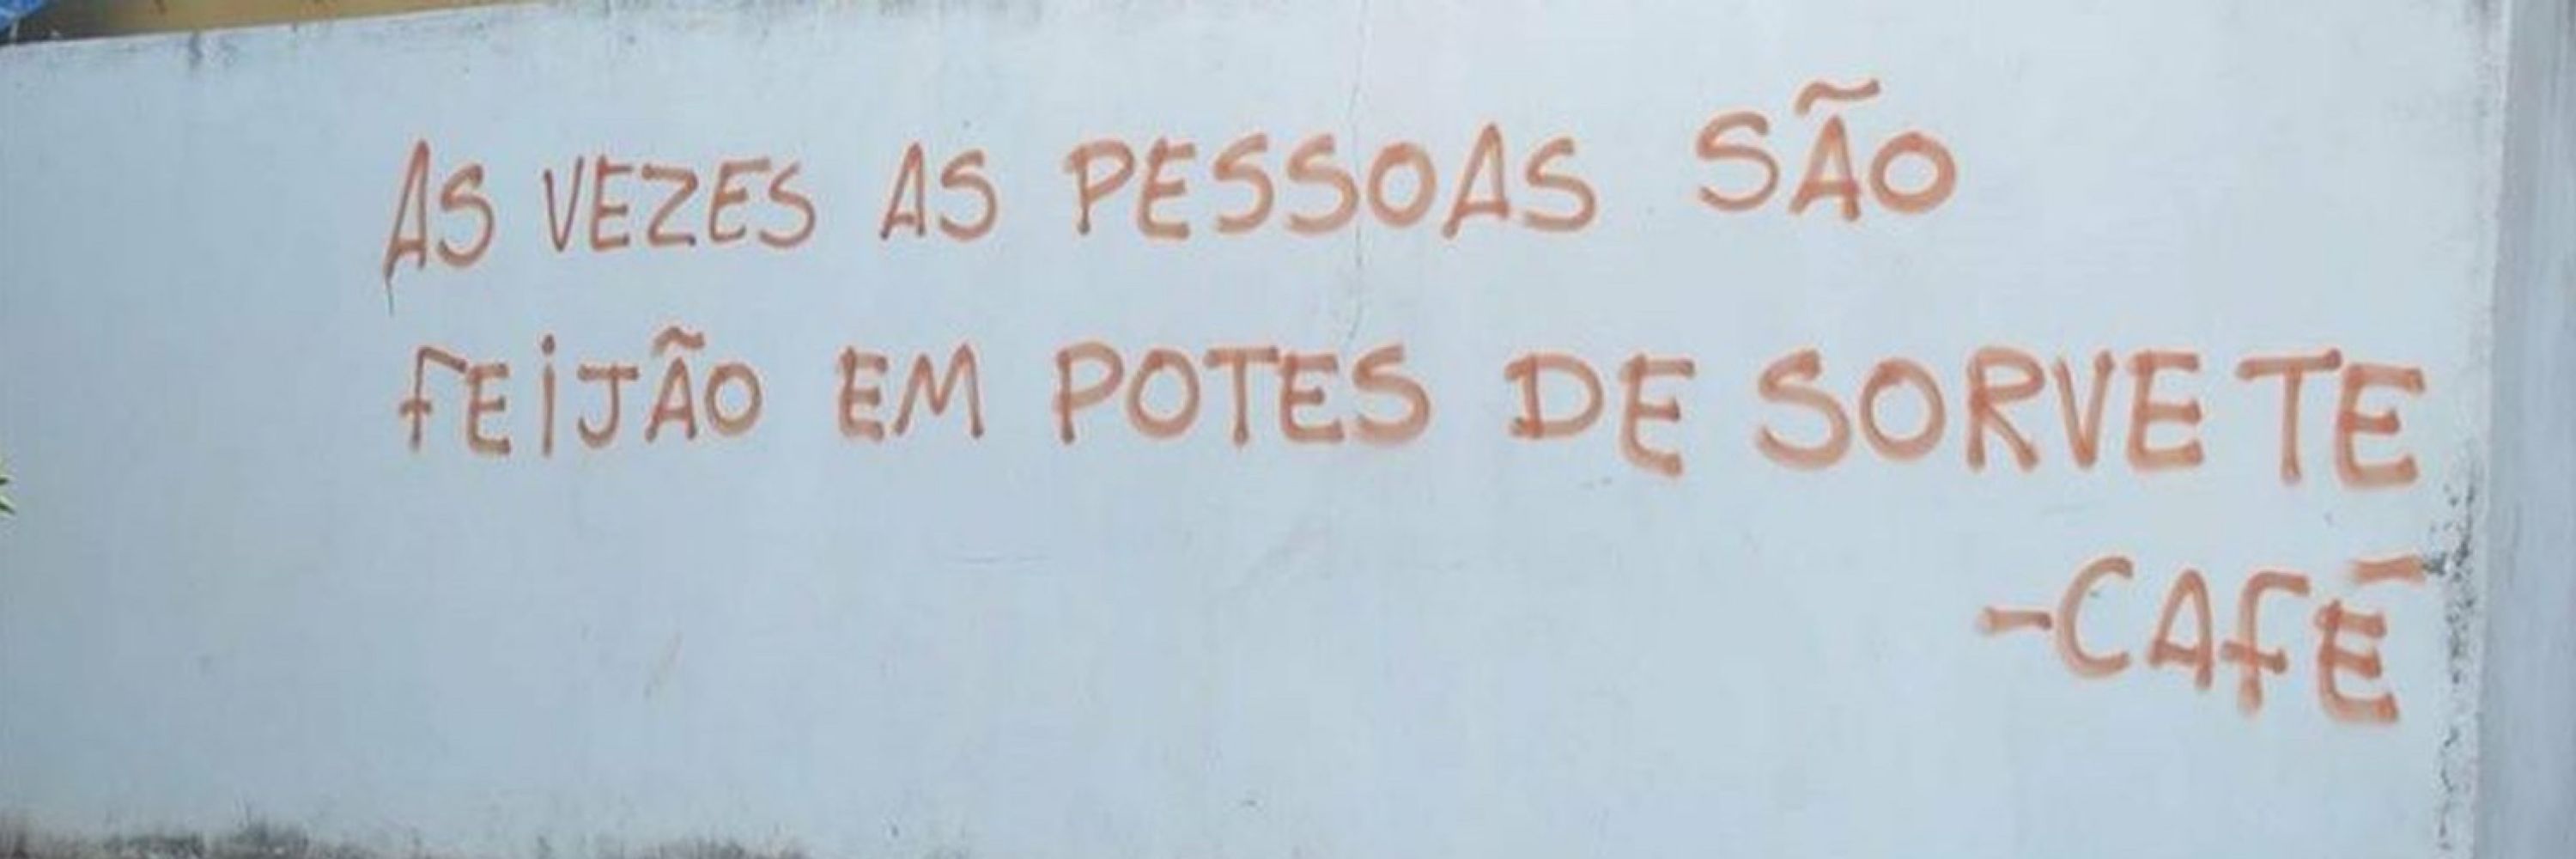 AS VEZES AS PESSOAS SÃO
FEIJÃO EM POTES DE SORVETE
-CAFÉ